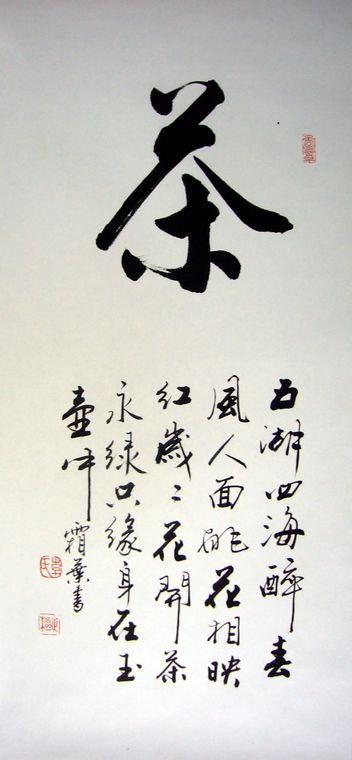 茶
五湖四海醉春
風人面桃花相映
红歲々花開茶
永绿只缘身在玉
壶中 霜葉書